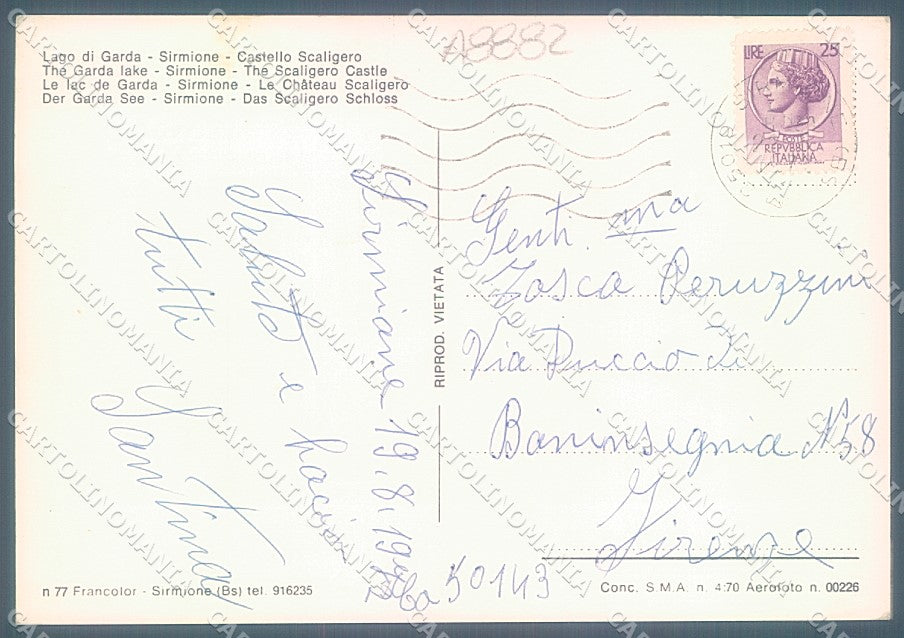 A8882
Lago di Garda - Sirmione - Castello Scaligero
The Garda lake - Sirmione - The Scaligero Castle
Le lac de Garda - Sirmione - Le Château Scaligero
Der Garda See - Sirmione - Das Scaligero Schloss
LIRE 25
POSTE
REPVBBLICA
ITALIANA
Sirmione 19.8.197
Saluto e baci
tutti
Santina
RIPROD. VIETATA
Gent.ma
Tosca Peruzzini
Via Puccio di
Boninsegnia N58
Firenze
50143
n 77 Francolor - Sirmione (Bs) tel. 916235
Conc. S.M.A. n. 4:70 Aerofoto n. 00226
CARTOLINOMANIA